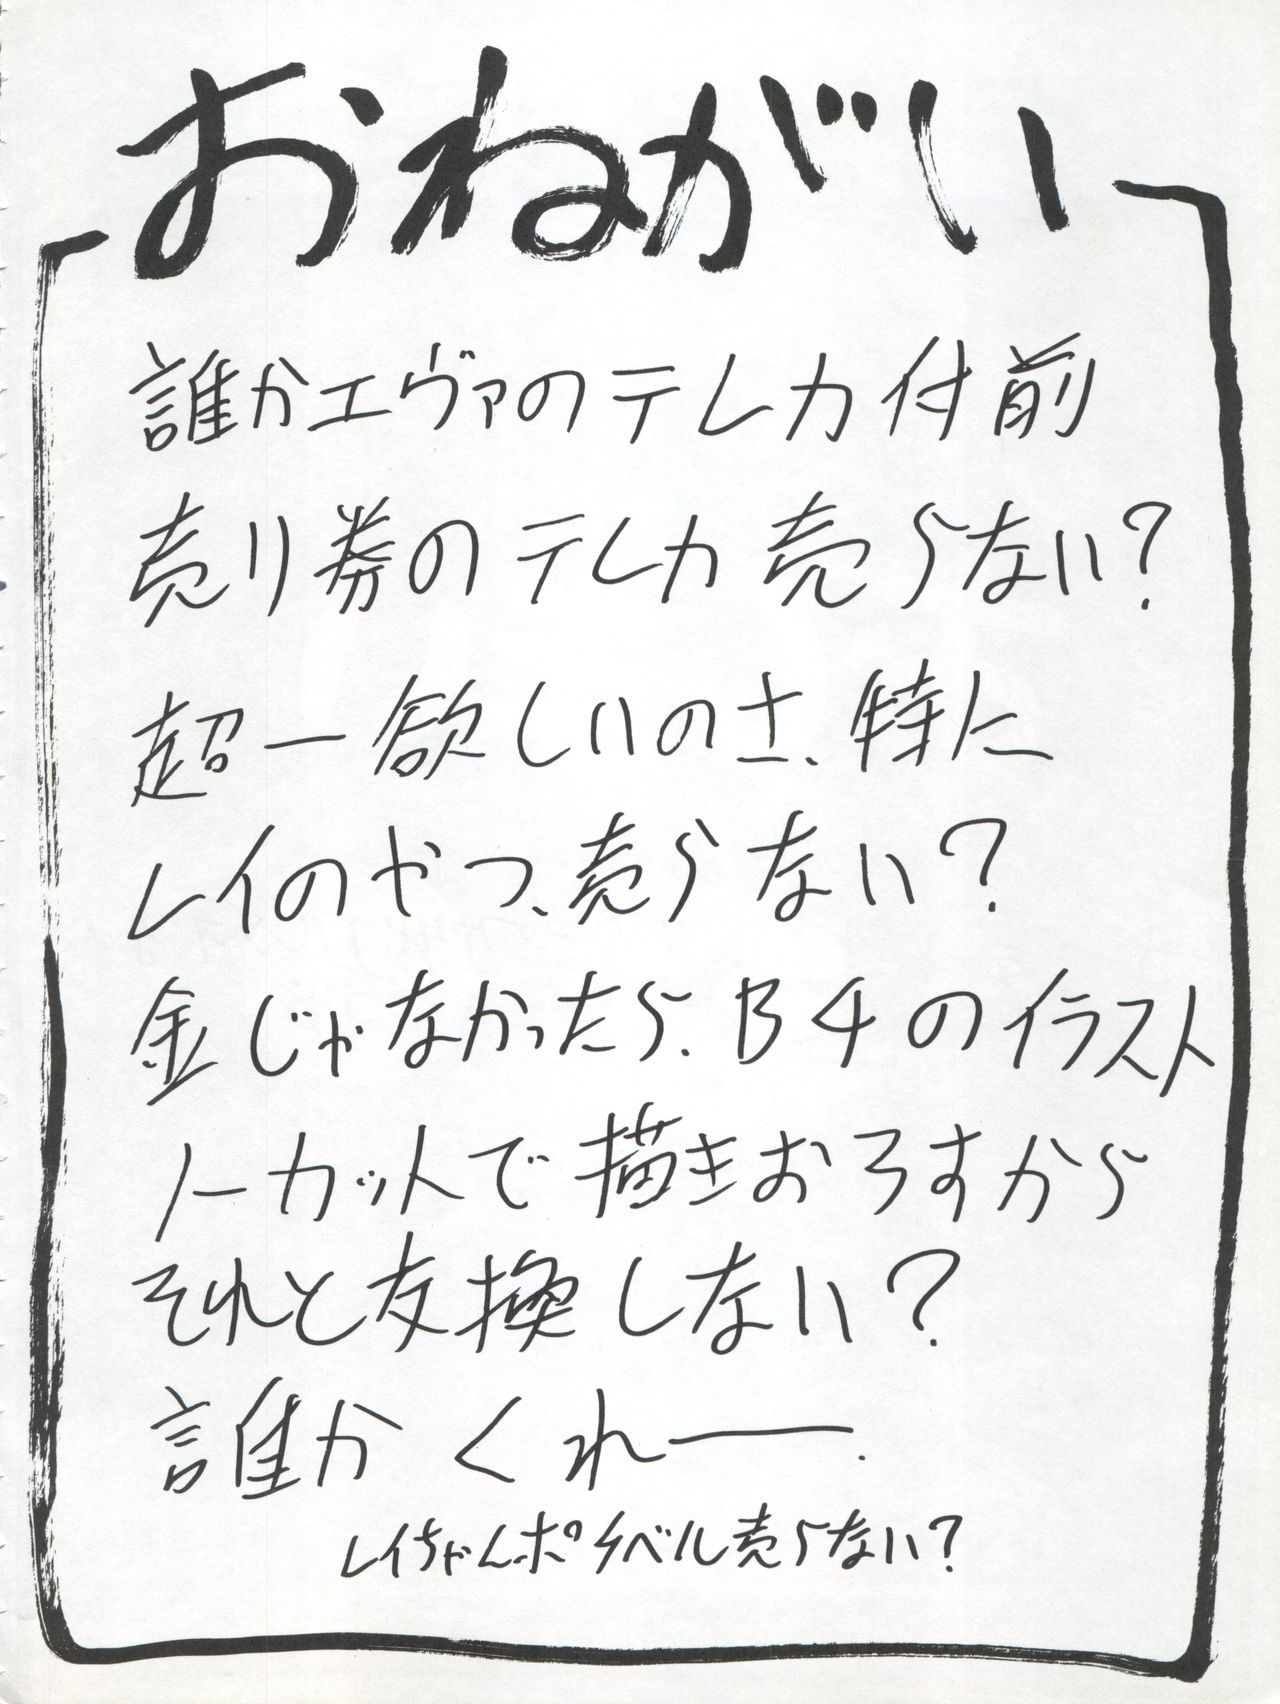 おねがい
誰かエヴァのテレカ付前
売り券のテレカ売らない？
超ー欲しいのさ、特に
レイのやつ、売らない？
金じゃなかったら、B4のイラスト
ノーカットで描きおろすから
それと交換しない？
誰かくれー.
レイちゃんポリベル売らない？